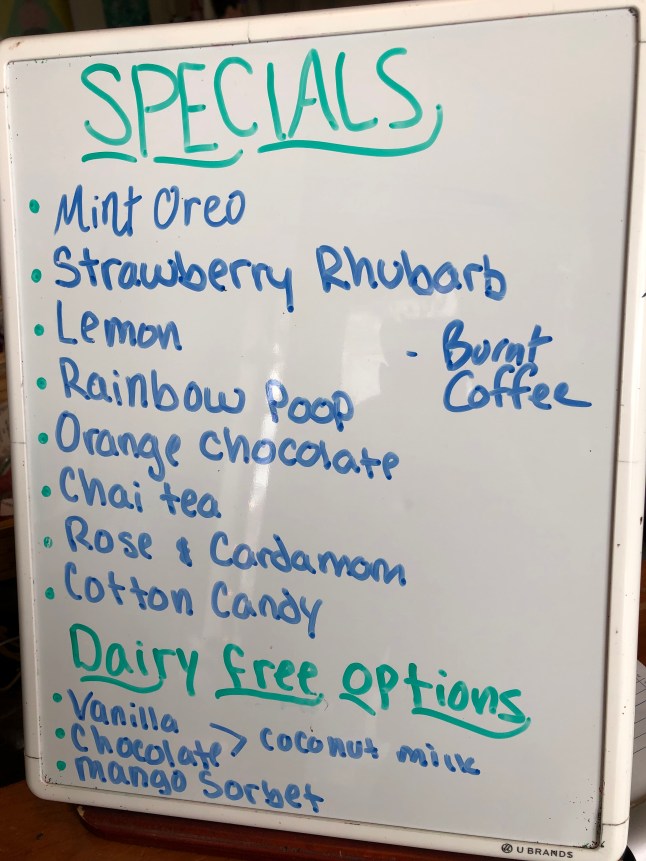 SPECIALS
• Mint Oreo
• Strawberry Rhubarb
• Lemon
- Burnt
Coffee
• Rainbow Poop
• Orange chocolate
• Chai tea
• Rose & Cardamom
• Cotton Candy
Dairy free options
• Vanilla
• Chocolate > coconut milk
• mango Sorbet
U BRANDS